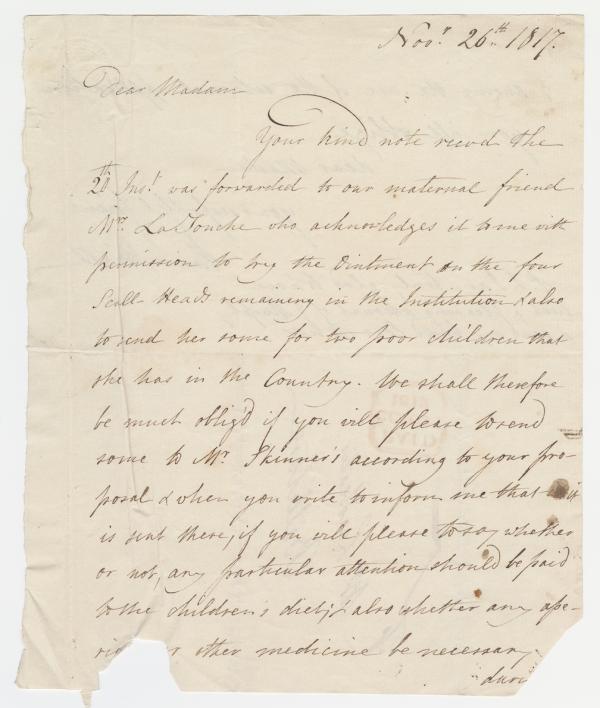 Novr. 26th. 1817.
Dear Madam
Your kind note recvd the
20th Inst. was forwarded to our maternal friend
Mrs. LaTouche who acknowledges it to me with
permission to try the Ointment on the four
Scall Heads remaining in the Institution & also
to send her some for two poor children that
she has in the Country. We shall therefore
be much oblig'd if you will please to send
some to Mr. Skinner's according to your pro-
posal & when you write to inform me that it
is sent there, if you will please to say whether
or not, any particular attention should be paid
to the children's diet, & also whether any ape-
other medicine be necessary